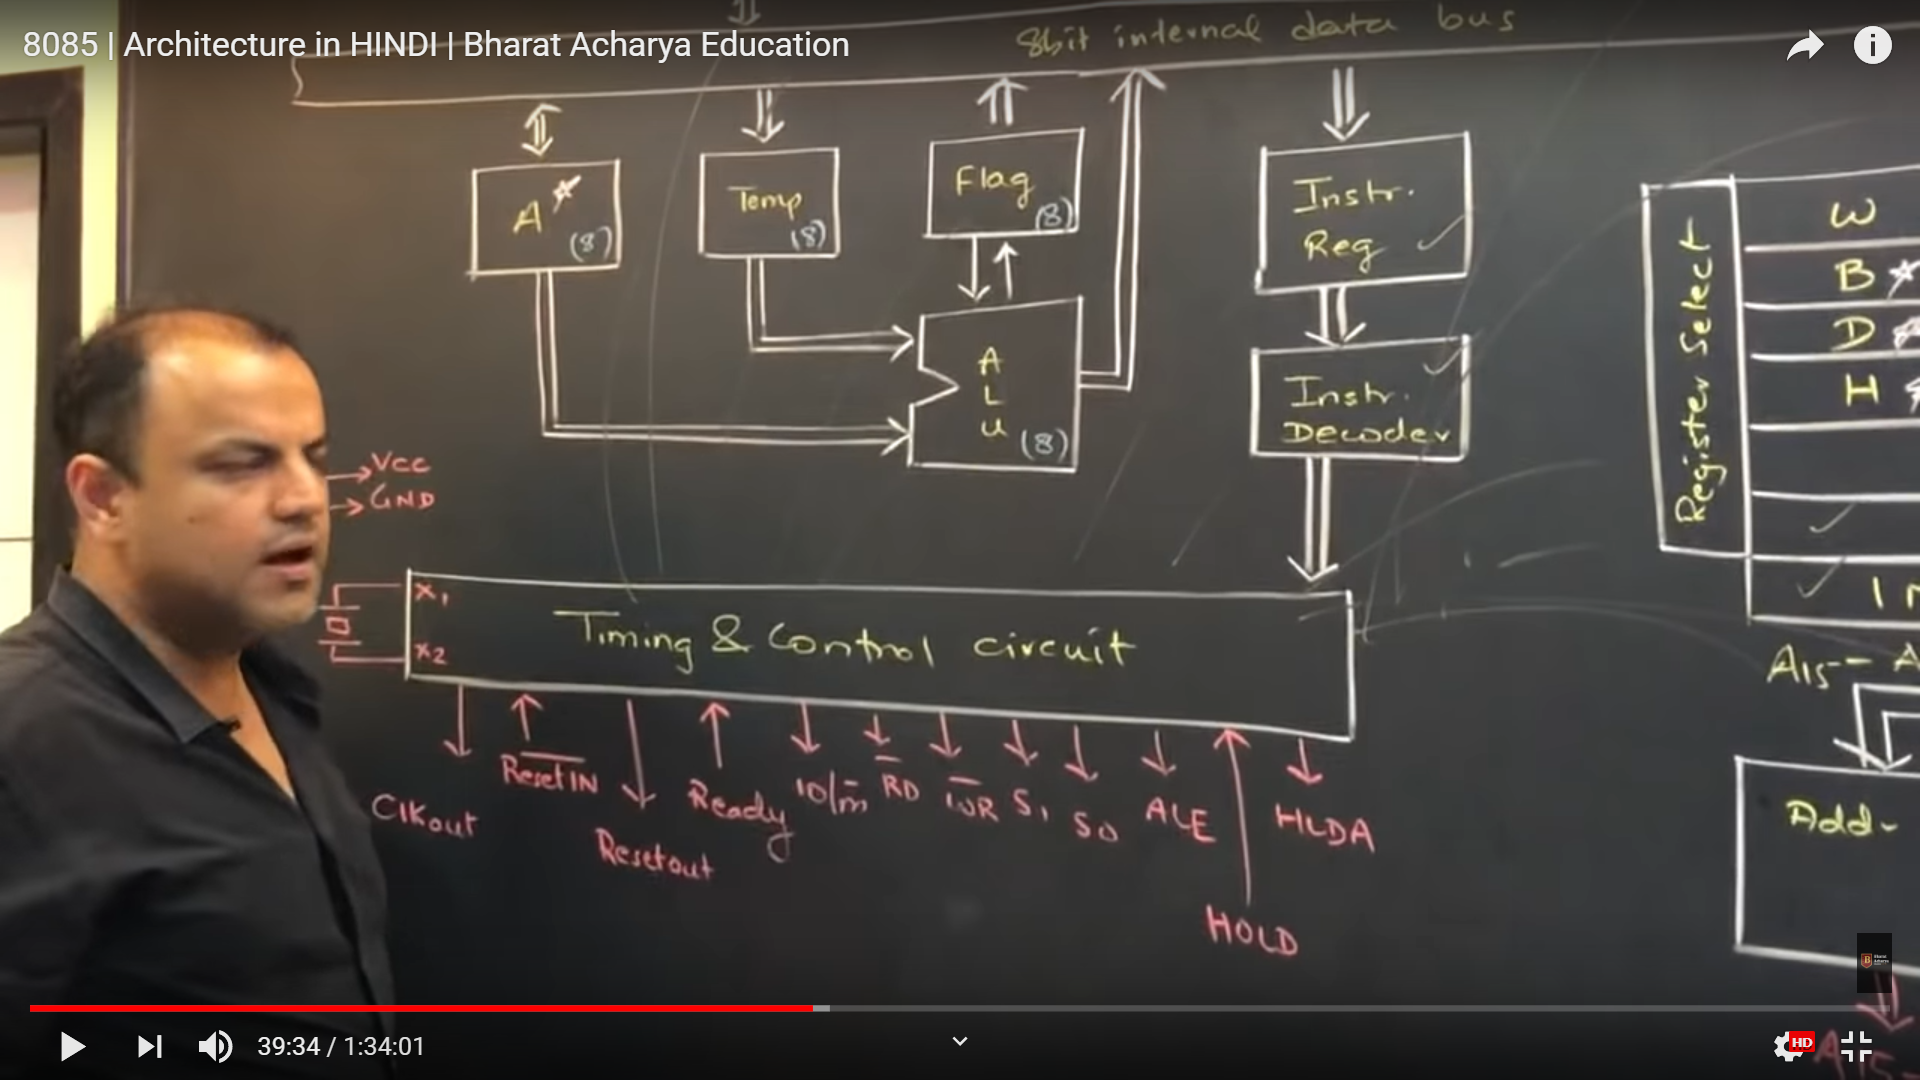 8085 | Architecture in HINDI | Bharat Acharya Education
8bit internal data bus
A
(8)
Temp
(8)
Flag
(8)
Instr.
Reg
A
L
U
(8)
Instr.
Decoder
Register Select
W
B
D
H
Vcc
GND
X1
X2
Timing & Control circuit
A15-- A
CLKout
Reset IN
Resetout
Ready
IO/m̅
R̅D̅
W̅R̅
S1
S0
ALE
HOLD
HLDA
Add-
39:34 / 1:34:01
HD